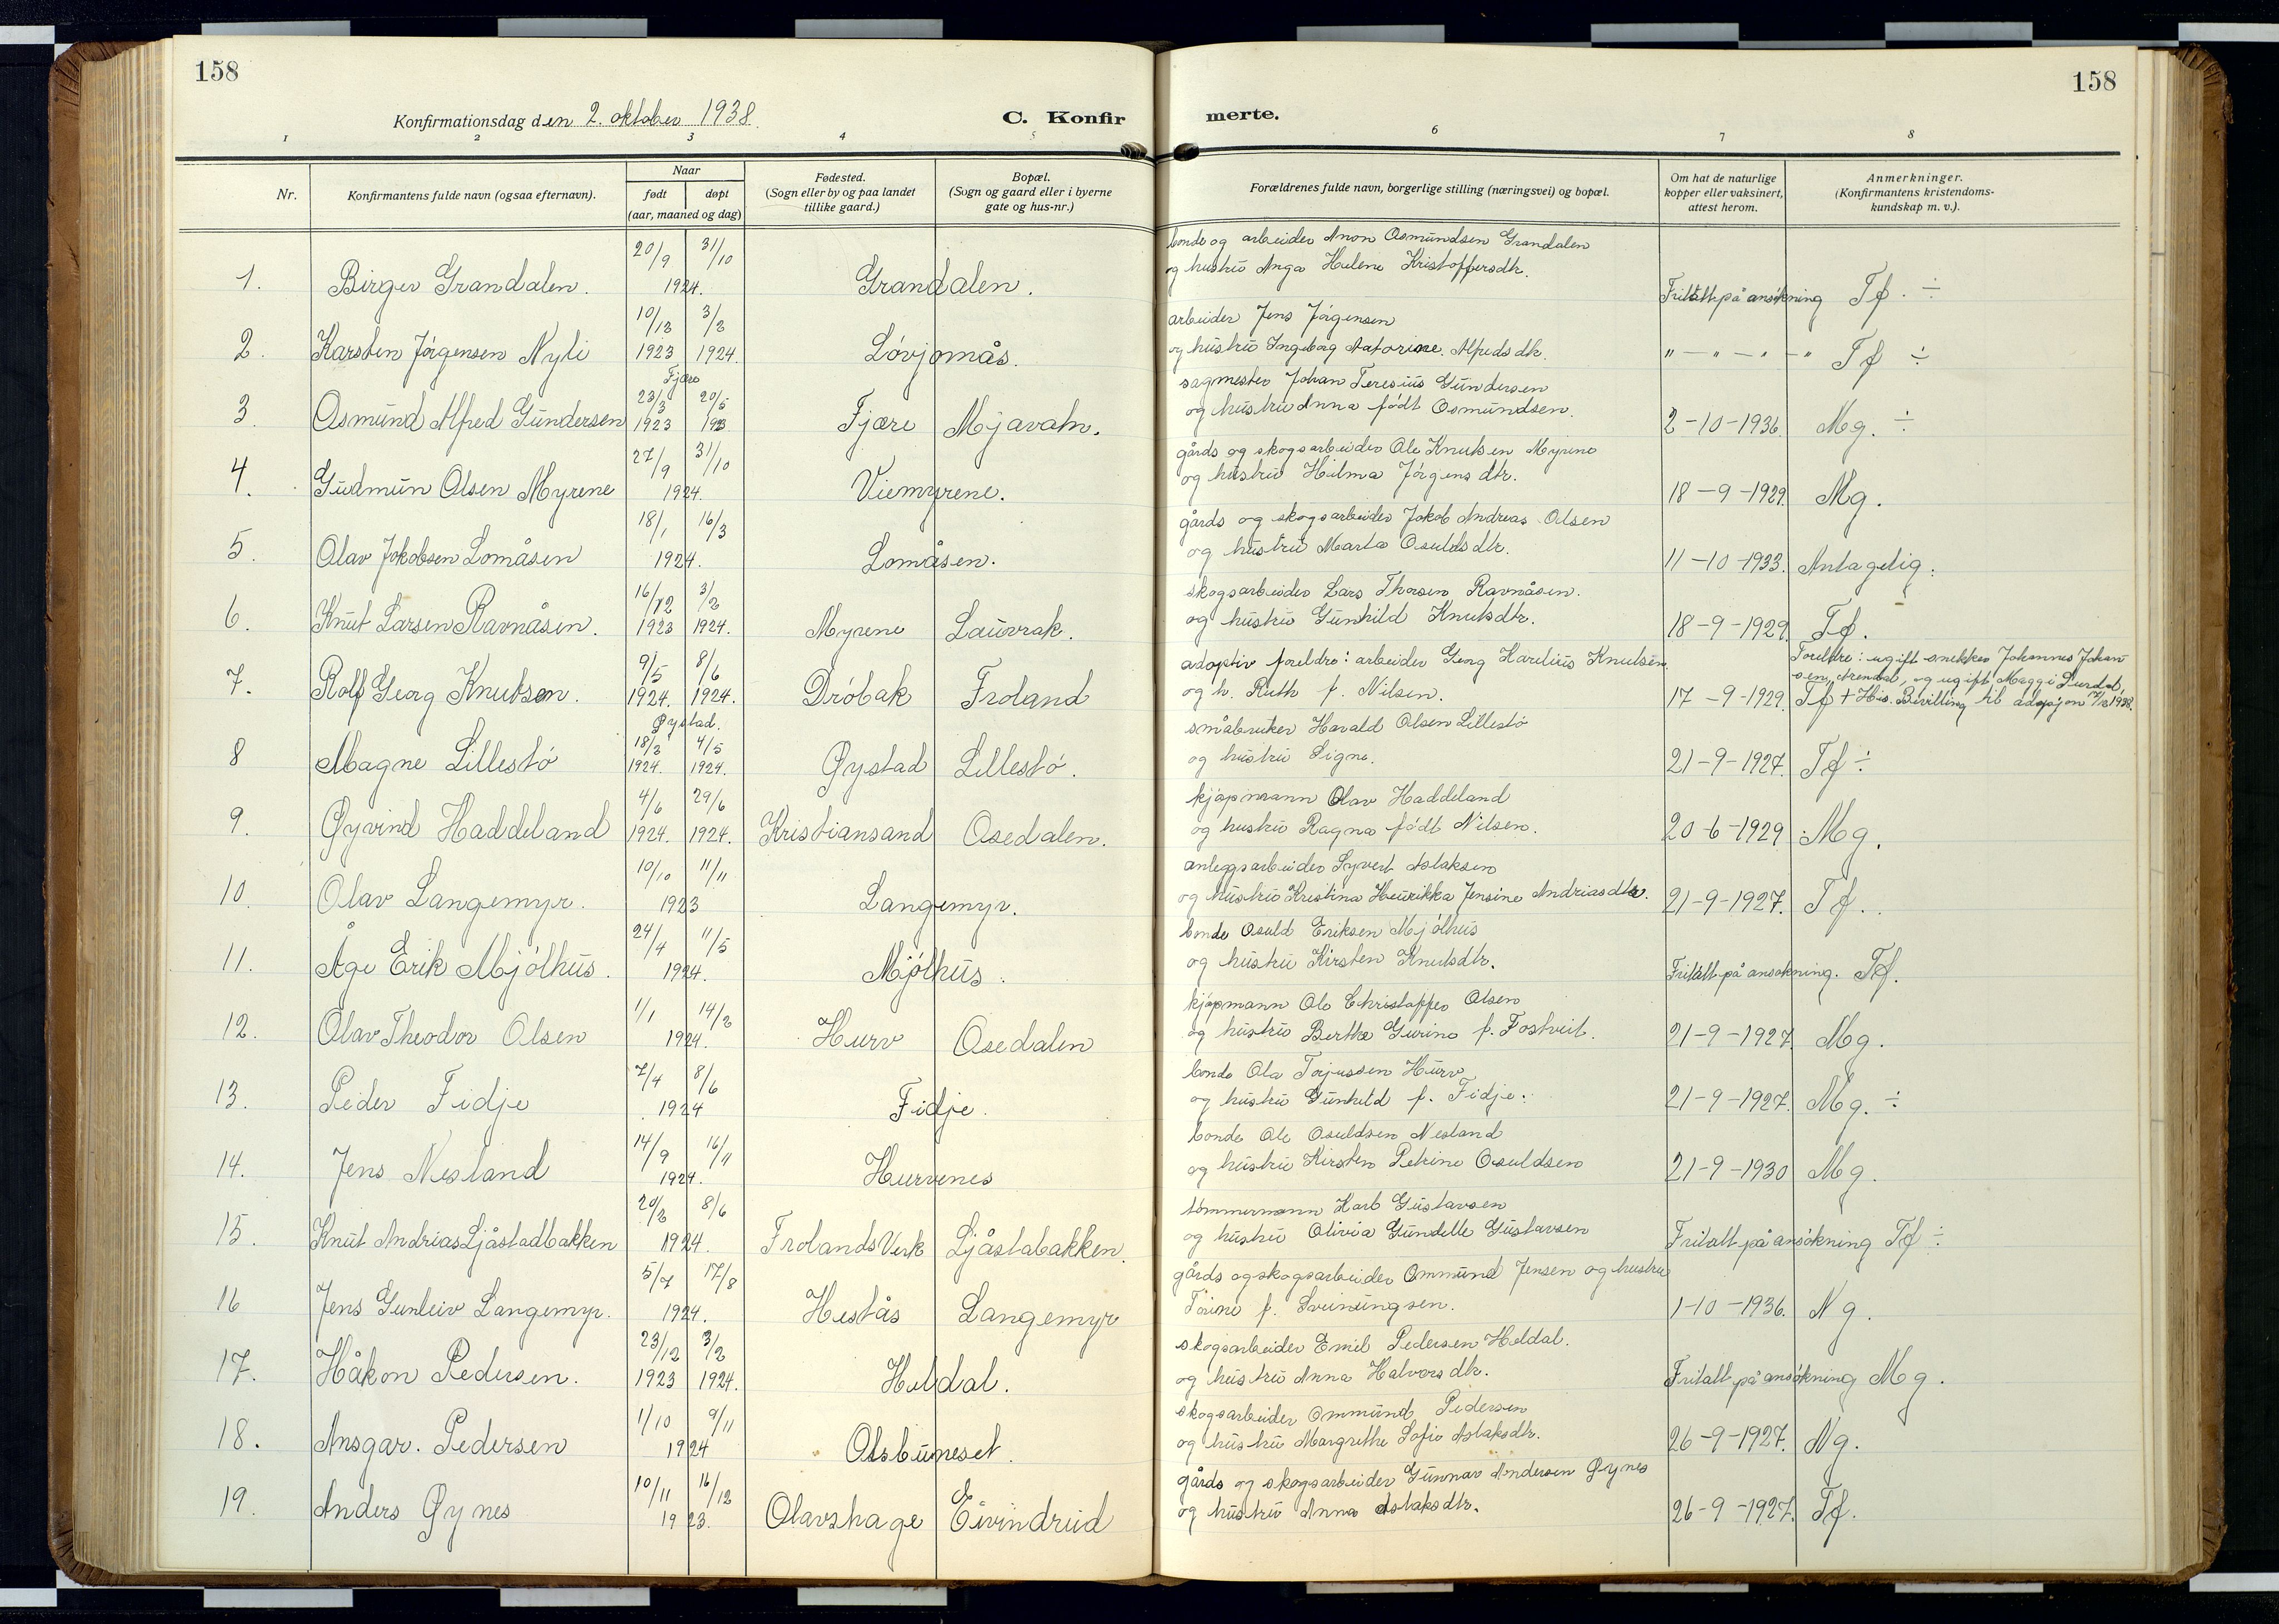 158
158
Konfirmationsdag den 2. oktober 1938.
C. Konfir
merte.
1 2 3 4 5 6 7 8
Nr.
Konfirmantens fulde navn (ogsaa efternavn).
Naar
født døpt
(aar, maaned og dag)
Fødested.
(Sogn eller by og paa landet
tillike gaard.)
Bopæl.
(Sogn og gaard eller i byerne
gate og hus-nr.)
Forældrenes fulde navn, borgerlige stilling (næringsvei) og bopæl.
Om hat de naturlige
kopper eller vaksinert,
attest herom.
Anmerkninger.
(Konfirmantens kristendoms-
kundskap m. v.).
20/9 31/10 bonde og arbeider Anon Osmundsen Grandalen
og hustru Anga Helene Kristoffersdtr.
1. Birger Grandalen. 1924. Grandalen. Fritatt på ansökning Tf. ÷
10/12 3/2 arbeider Jens Jörgensen
2. Karsten Jörgensen Nyli 1923 1924. Lövjomås. og hustru Ingeborg Alfredsdtr. " — " — " — " Tf ÷
Fjære
23/3 20/5 sagmester Johan Teresius Gundersen
3. Osmund Alfred Gundersen 1923 1923 Fjære Mjavatn. og hustru Anna födt Osmundsen. 2-10-1936. Mg. ÷
27/9 31/10 gårds og skogsarbeider Ole Knutsen Myrene
4. Gudmun Olsen Myrene 1924. Viemyrene. og hustru Hilma Jörgensdtr. 18-9-1929. Mg.
18/1 16/3 gårds og skogsarbeider Jakob Andreas Olsen
5. Olav Jakobsen Lomåsen 1924. Lomåsen. og hustru Marta Osuldsdtr. 11-10-1933. Antagelig.
16/12 3/2 skogsarbeider Lars Thorsen Ravnåsen.
6. Knut Larsen Ravnåsen. 1923 1924. Myrene Lauvrak. og hustru Gunhild Knutsdtr. 18-9-1929. Tf.
9/5 8/6 adoptiv foreldre: arbeider Georg Karelius Knutsen Foreldre: ugift snekker Johannes Johan
sen, Arendal, og ugift Maggi Surdal,
7. Rolf Georg Knutsen. 1924. 1924. Dröbak Froland og h. Ruth f. Nilsen. 17-9-1929. Tf + His. Bevilling til adopsjon 1928.
Øystad.
18/3 4/5 småbruker Harald Olsen Lillestö
8 Magne Lillestö 1924. 1924. Øystad Lillestö. og hustru Signe. 21-9-1927. Tf ÷
4/6 29/6 kjöpmann Olav Haddeland
9. Øyvind Haddeland 1924. 1924. Kristiansand Osedalen. og hustru Ragna födt Nilsen. 20-6-1929. Mg.
10/10 11/11 anleggsarbeider Syvert Aslaksen
10. Olav Langemyr. 1923 Langemyr. og hustru Kristina Henrikka Jensine Andreasdtr. 21-9-1927. Tf.
24/4 11/5 bonde Osuld Eriksen Mjölhus
11. Åge Erik Mjölhus. 1924. Mjölhus. og hustru Kirsten Knutsdtr. Fritatt på ansökning. Tf.
1/1 14/2 kjöpmann Ole Christoffer Olsen
12. Olav Theodor Olsen 1924. Hurv Osedalen og hustru Berthe Gurine f. Fostveit. 21-9-1927. Mg.
7/4 8/6 bonde Ola Torjussen Hurv
13. Peder Fidje 1924 Fidje. og hustru Gunhild f. Fidje. 21-9-1927. Mg. ÷
14/9 16/11 bonde Ole Osuldsen Nesland
14. Jens Nesland 1924. Hurvenes og hustru Kirsten Petrine Osuldsen 21-9-1930 Mg.
20/2 8/6 tömmermann Karl Gustavsen
15. Knut Andreas Ljåstadbakken 1924. Frolands Verk Ljåstabakken. og hustru Olivia Gundelle Gustavsen Fritatt på ansökning Tf ÷
5/7 17/8 gårds og skogsarbeider Ommund Jensen og hustru
16 Jens Gunleiv Langemyr. 1924. Hestås Langemyr Torine f. Sveinungsen. 1-10-1936. Ng.
23/12 3/2 skogsarbeider Emil Pedersen Heldal.
17. Håkon Pedersen. 1923 1924. Heldal. og hustru Anna Halvorsdtr. Fritatt på ansökning Mg.
1/10 9/11 skogsarbeider Ommund Pedersen
18. Ansgar. Pedersen 1924 Olsbuneset. og hustru Margrethe Sofie Aslaksdtr. 26-9-1927. Ng.
10/11 16/12 gårds og skogsarbeider Gunnar Andersen Øynes
19. Anders Øynes 1923. Olavshage Eivindrud og hustru Anna Aslaksdtr. 26-9-1927. Tf.